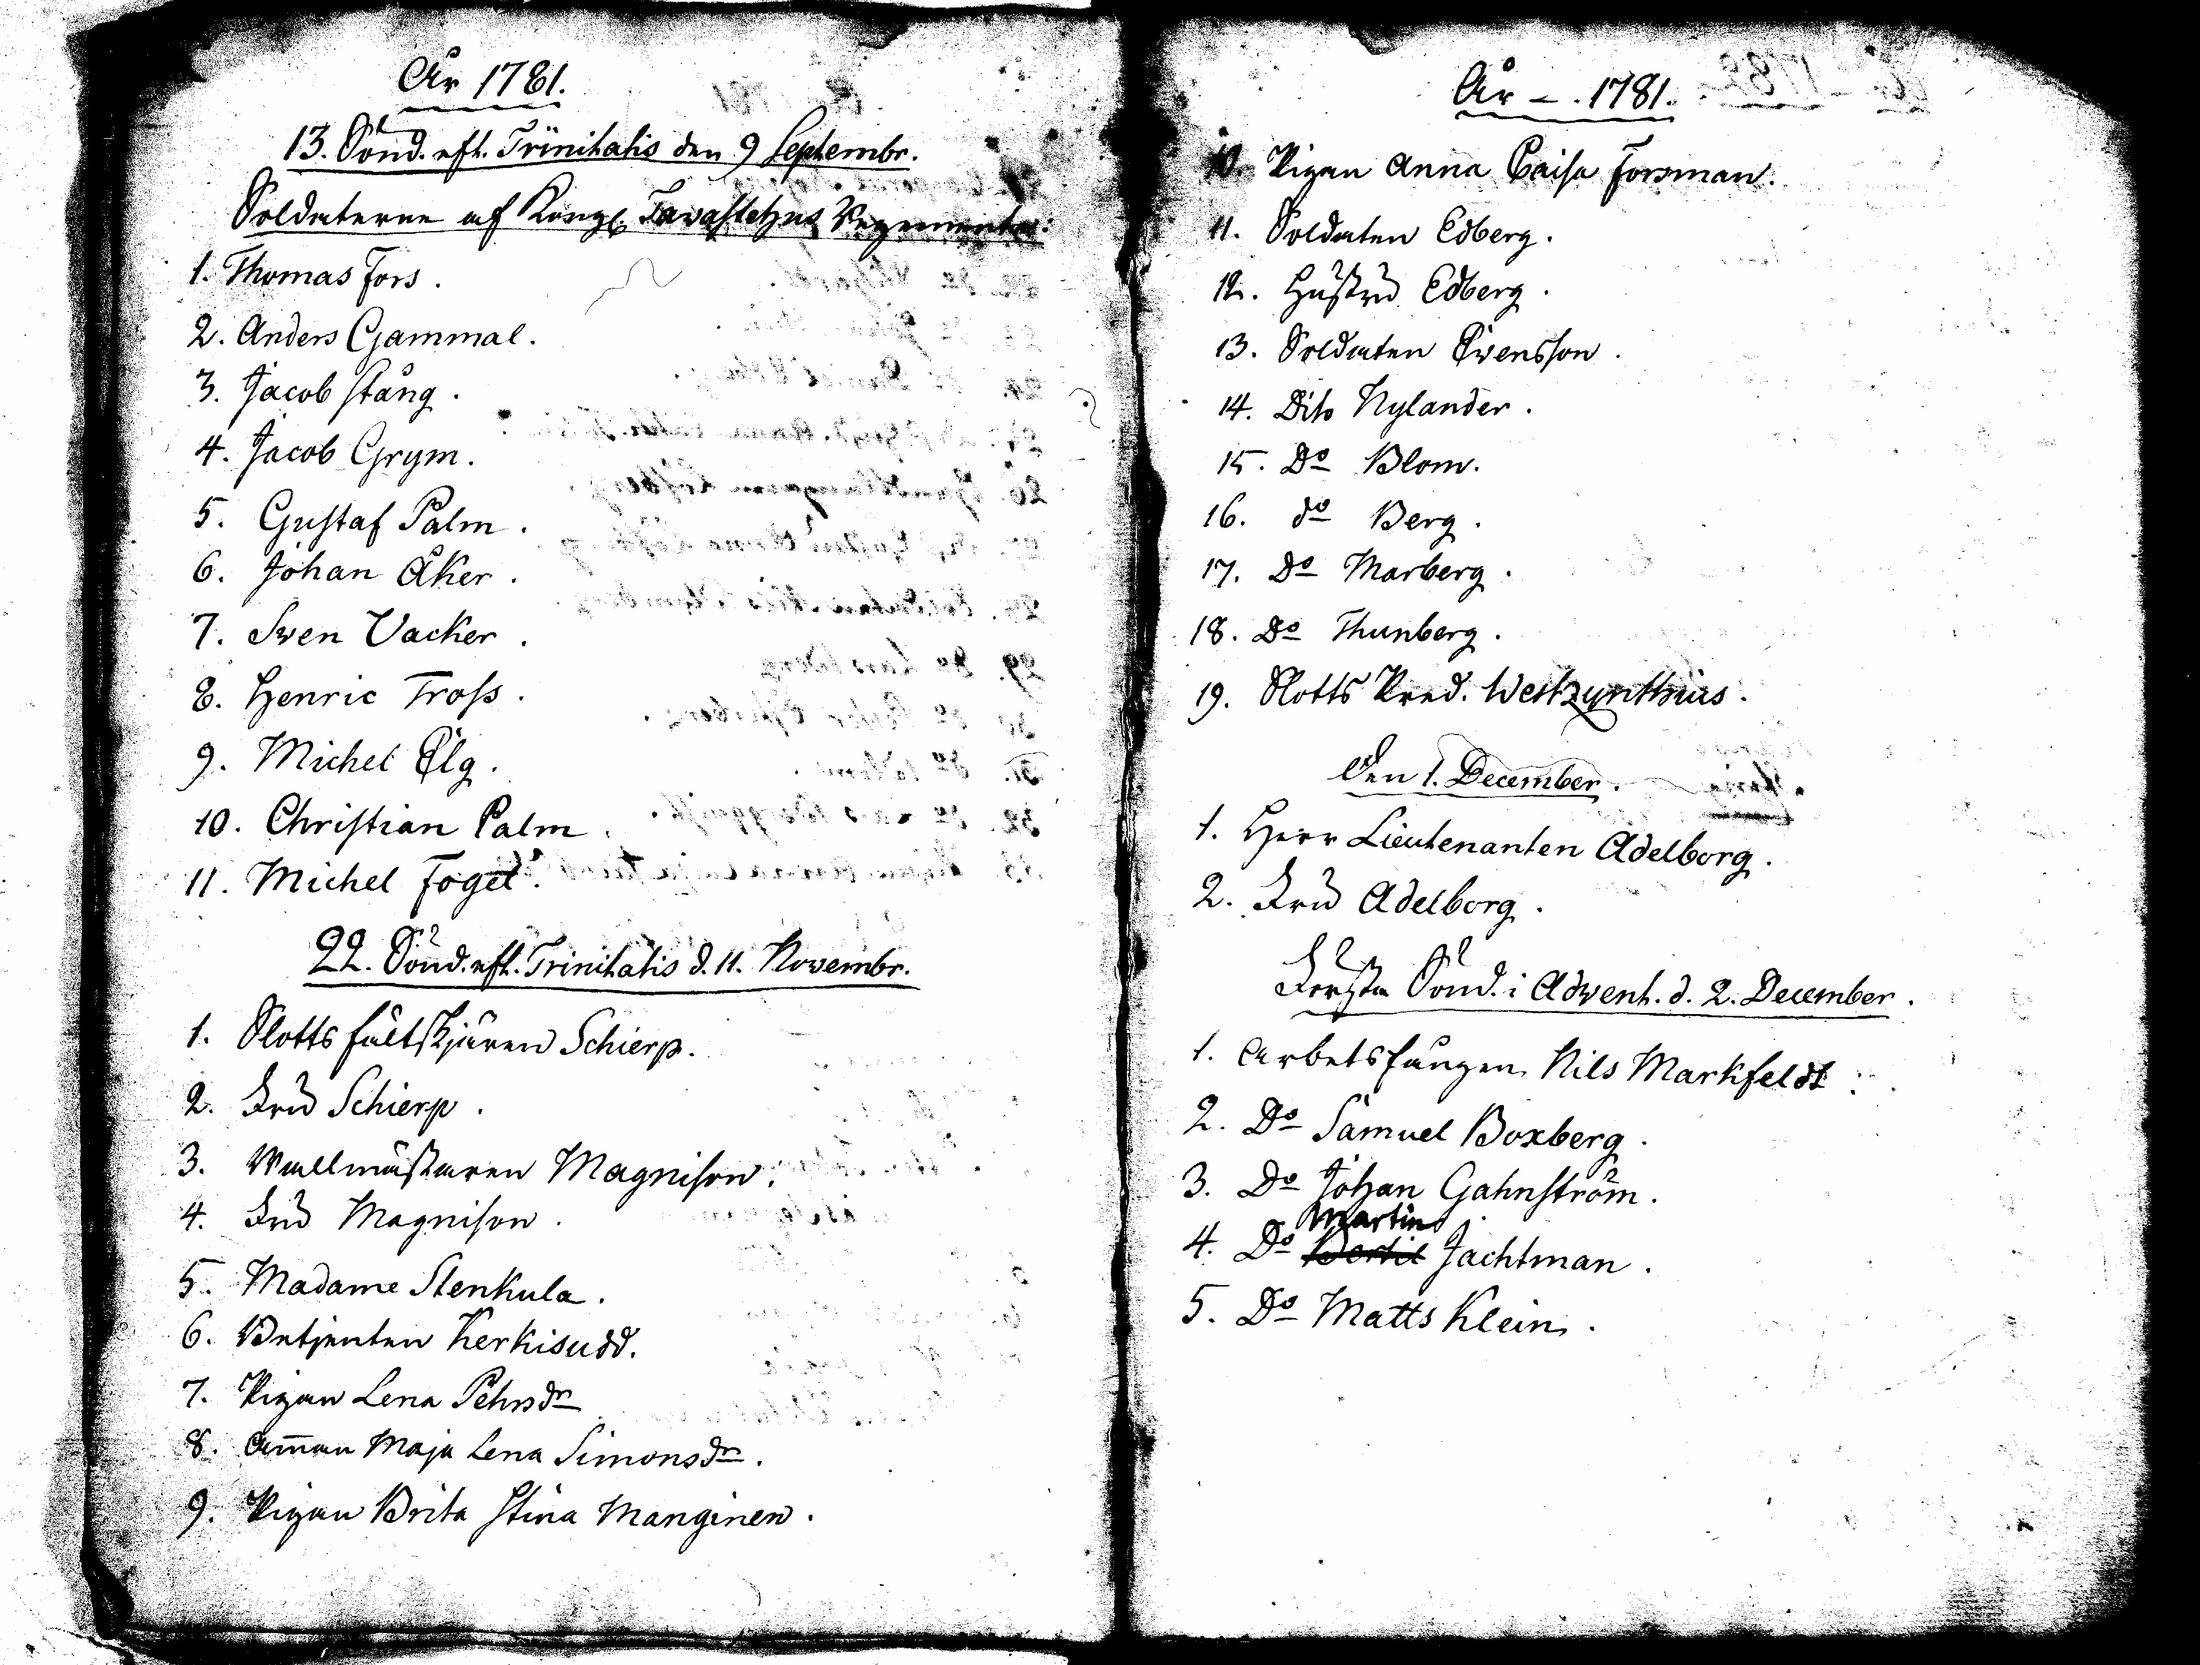 År 1781.
13. Sönd. eft. Trinitatis den 9 Septembr.
Soldaterne af Kongl. Tavastehus Regemente:
1. Thomas Fors.
2. Anders Gammal.
3. Jacob Stång.
4. Jacob Grym.
5. Gustaf Palm.
6. Johan Åker.
7. Sven Vacker.
8. Henric Tross.
9. Michel Elg.
10. Christian Palm.
11. Michel Fogel.
22. Sönd. eft. Trinitatis d. 11. Novembr.
1. Slotts fältskjären Schierp.
2. Fru Schierp.
3. Wallmästaren Magnison.
4. Fru Magnison.
5. Madame Stenkula.
6. Betjenten Kerkisudd.
7. Pigan Lena Pehrsdr
8. Am̄an Maja Lena Simonsdr.
9. Pigan Brita Stina Manginen.
År - . 1781.
10. Pigan Anna Caisa Forsman.
11. Soldaten Edberg.
12. Hustru Edberg.
13. Soldaten Svensson.
14. Dito Nylander.
15. Do Blom.
16. do Berg.
17. Do Marberg.
18. Do Thunberg.
19. Slotts Pred. Westzynthius.
Den 1. December.
1. Herr Lieutenanten Adelborg.
2. Fru Adelborg.
Första Sönd. i Advent. d. 2. December.
1. Arbetsfången Nils Markfeldt.
2. Do Samuel Boxberg.
3. Do Johan Gahnström.
Martin
4. Do Bertil Jachtman.
5. Do Matts Klein.